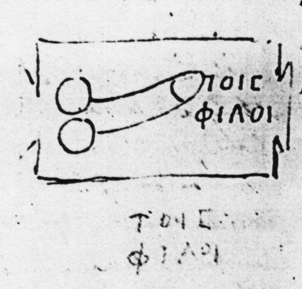 ΤΟΙϹ
ΦΙΛΟΙ
ΤΟΙϹ
ΦΙΛΟΙ